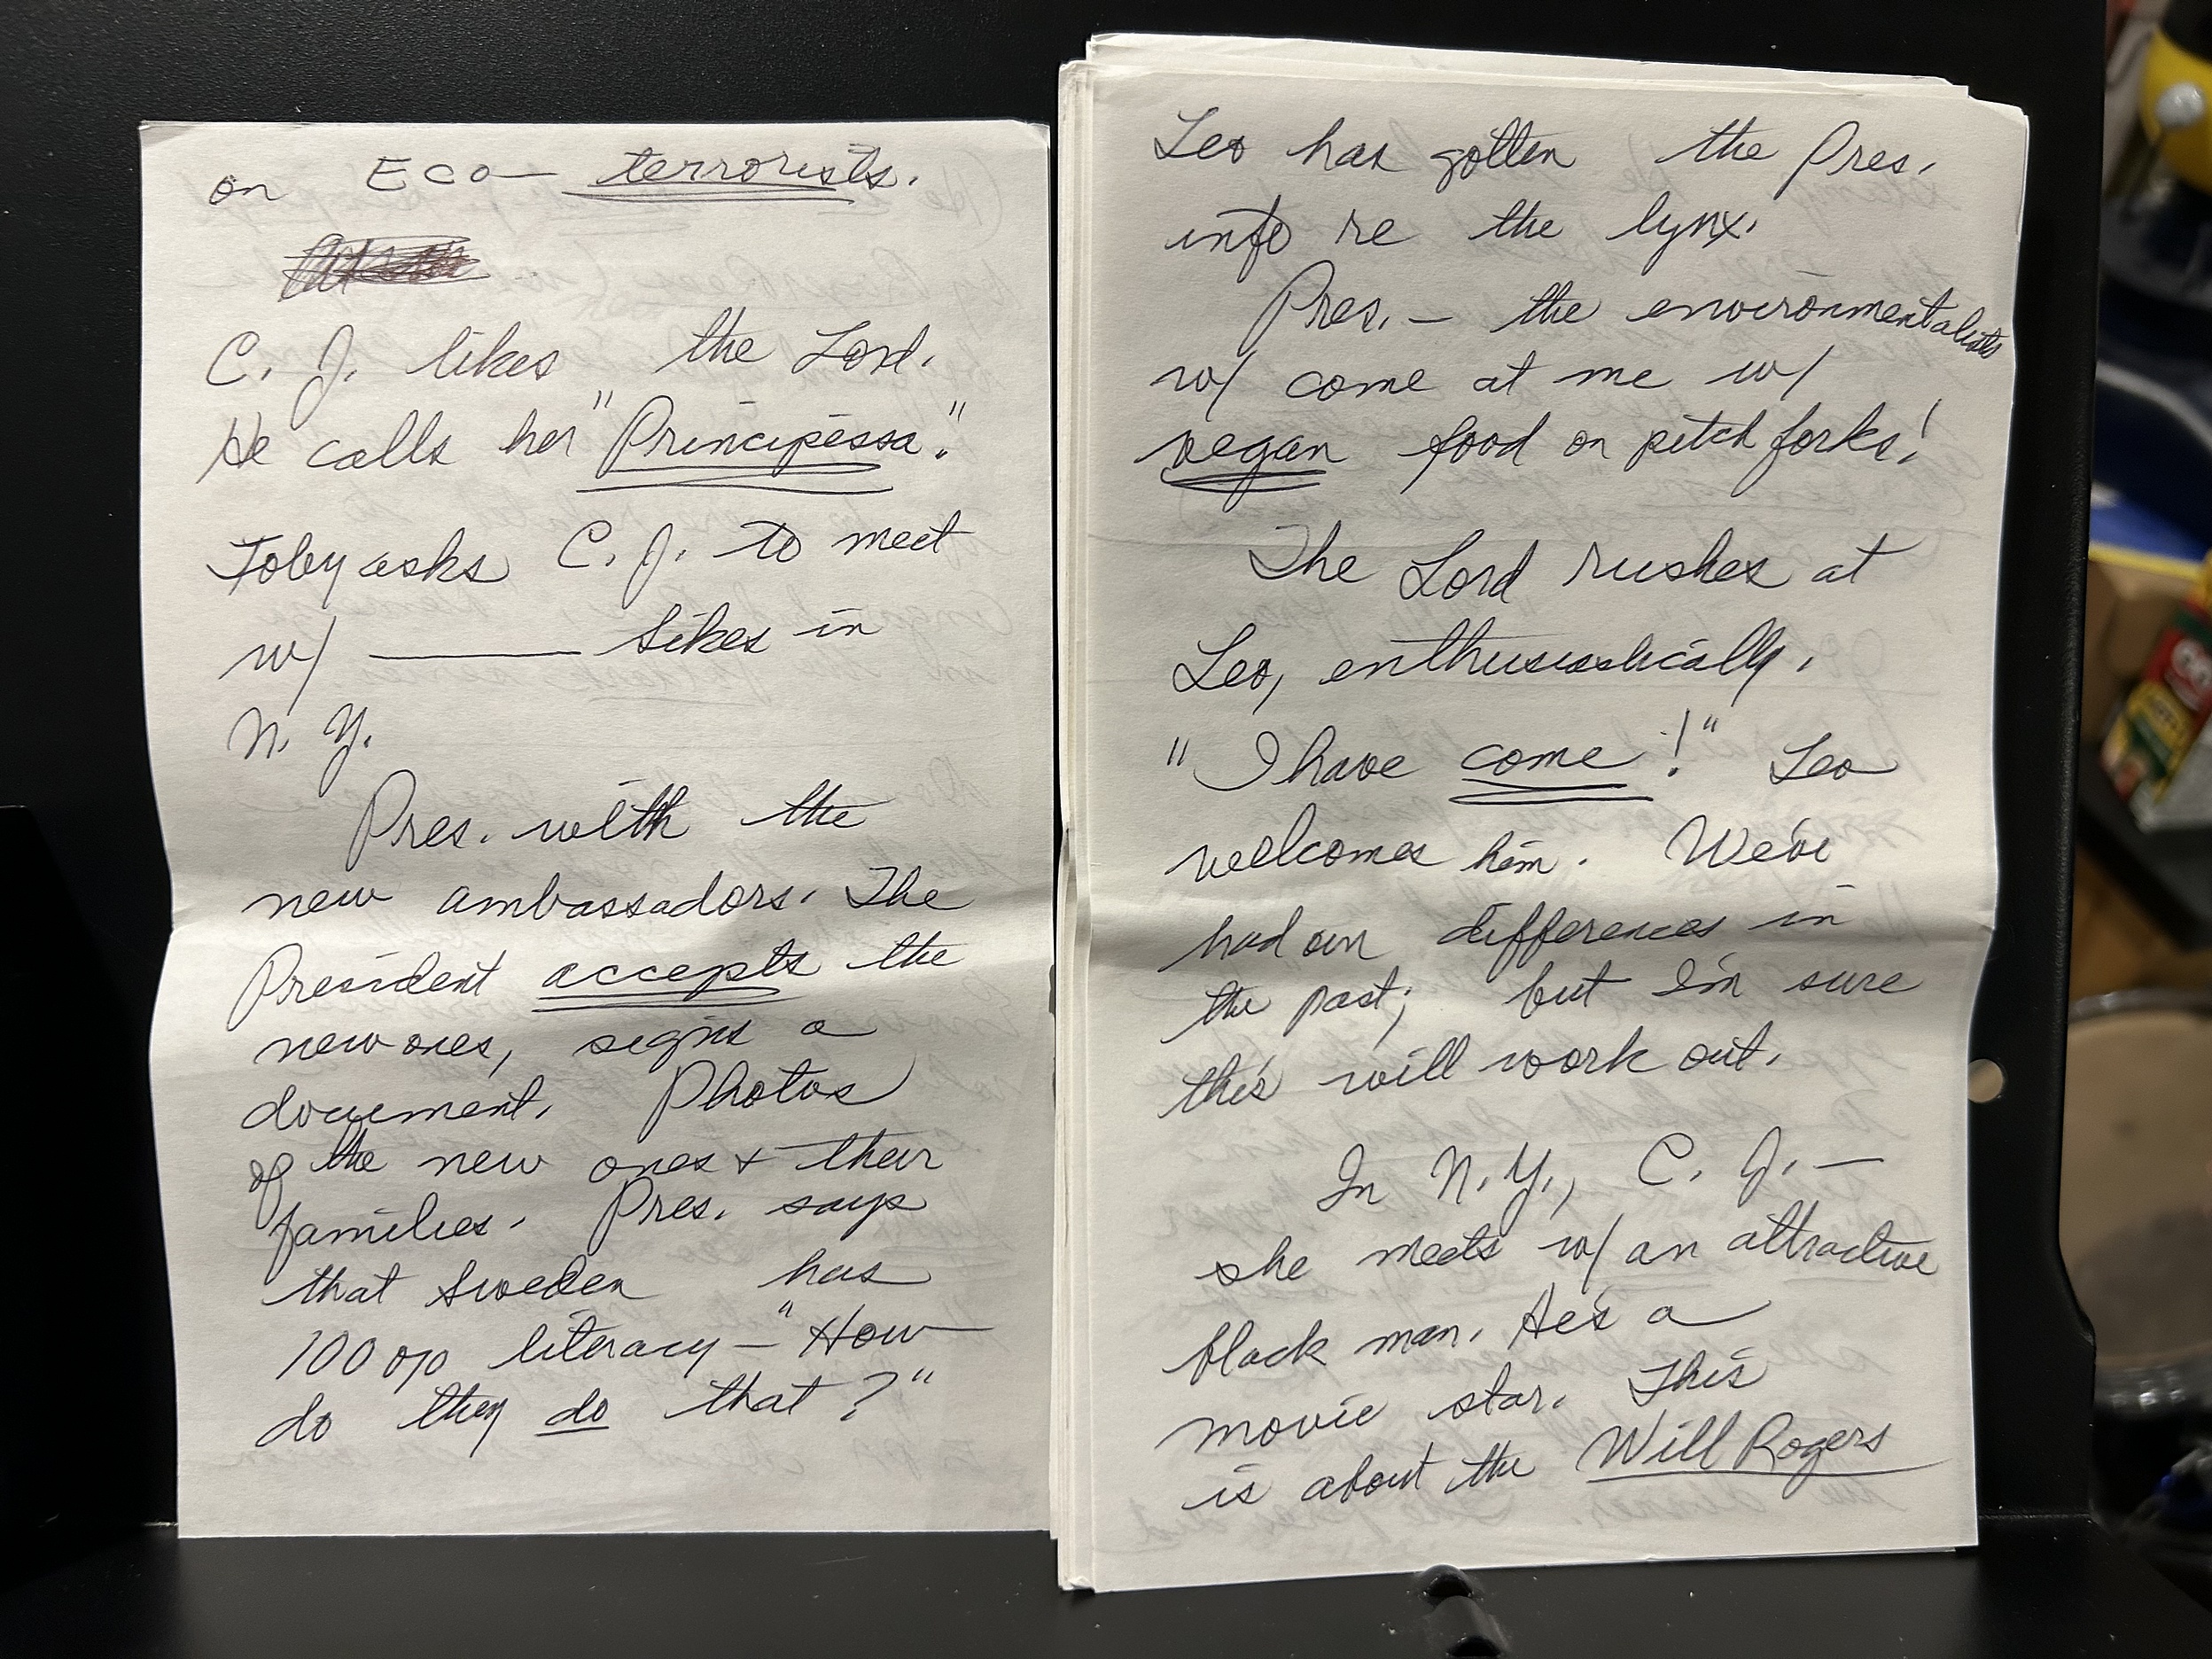 on Eco- terrorists.
C. J. likes the Lord.
He calls her "Principessa."
Toby asks C. J. to meet
w/ ______ Sikes in
N. Y.
Pres. with the
new ambassadors. The
President accepts the
new ones, signs a
document. Photos
of the new ones + their
families. Pres. says
that Sweden has
100% literacy - "How
do they do that?"
Leo has gotten the Pres.
info re the lynx.
Pres. - the environmentalists
w/ come at me w/
vegan food on pitch forks!
The Lord rushes at
Leo, enthusiastically.
"I have come!" Leo
welcomes him. We've
had our differences in
the past; but I'm sure
this will work out.
In N. Y., C. J. -
she meets w/ an attractive
black man. He's a
movie star. This
is about the Will Rogers